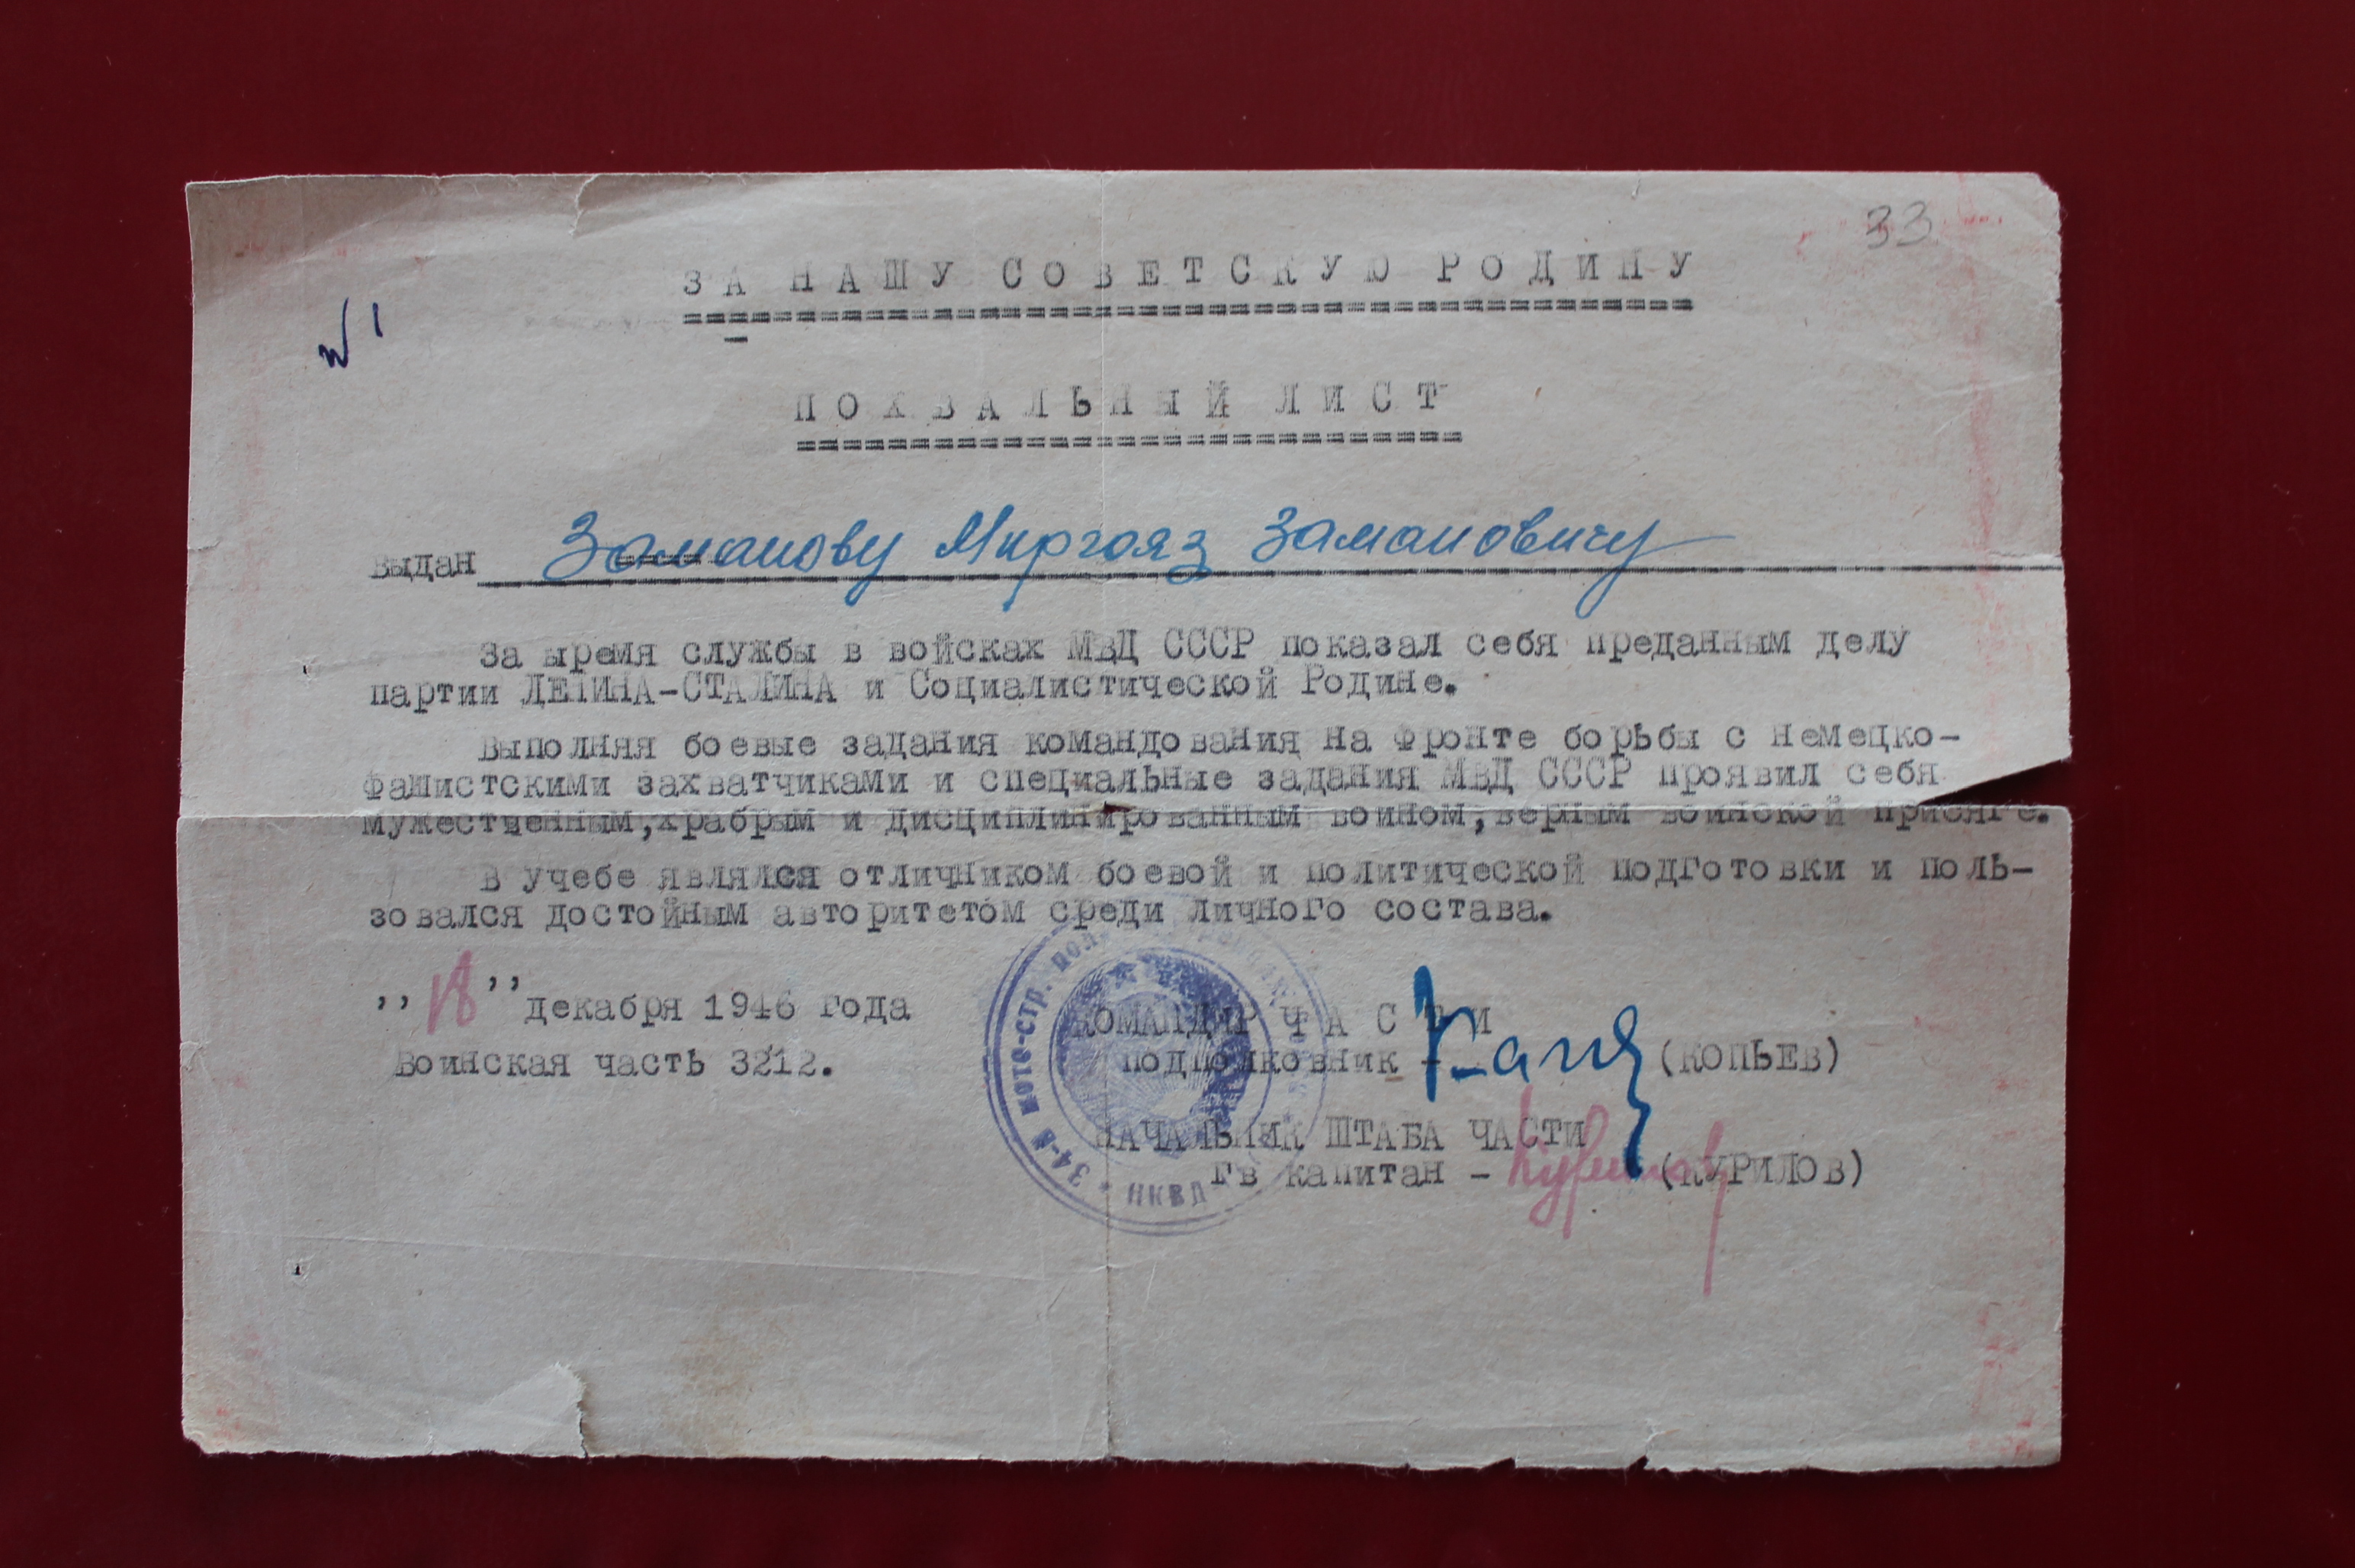 33
ЗА НАШУ СОВЕТСКУЮ РОДИНУ
№ 1
ПОХВАЛЬНЫЙ ЛИСТ
выдан Заманову Миргояз Замановичу
За время службы в войсках МВД СССР показал себя преданным делу
партии ЛЕНИНА-СТАЛИНА и Социалистической Родине.
Выполняя боевые задания командования на фронте борьбы с немецко-
фашистскими захватчиками и специальные задания МВД СССР проявил себя
мужественным, храбрым и дисциплинированным воином, верным воинской присяге.
В учебе являлся отличником боевой и политической подготовки и поль-
зовался достойным авторитетом среди личного состава.
"18" декабря 1946 года
Воинская часть 3212.
КОМАНДИР ЧАСТИ
подполковник - (КОПЬЕВ)
НАЧАЛЬНИК ШТАБА ЧАСТИ
Гв капитан - Курилов (КУРИЛОВ)
34-й мото-стр. полк
НКВД